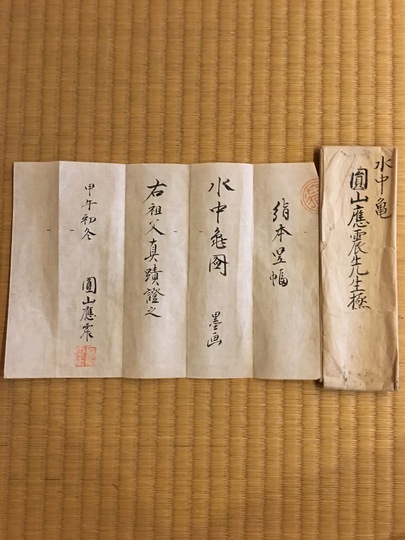 水中亀
圓山應震先生極
絹本竪幅
水中亀図 墨画
右祖父真蹟證之
甲午初冬 圓山應震